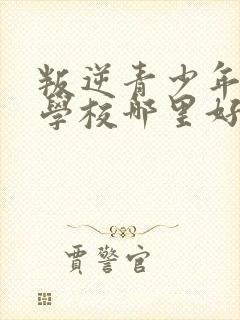 叛逆青少年
學校哪里好
賈警官